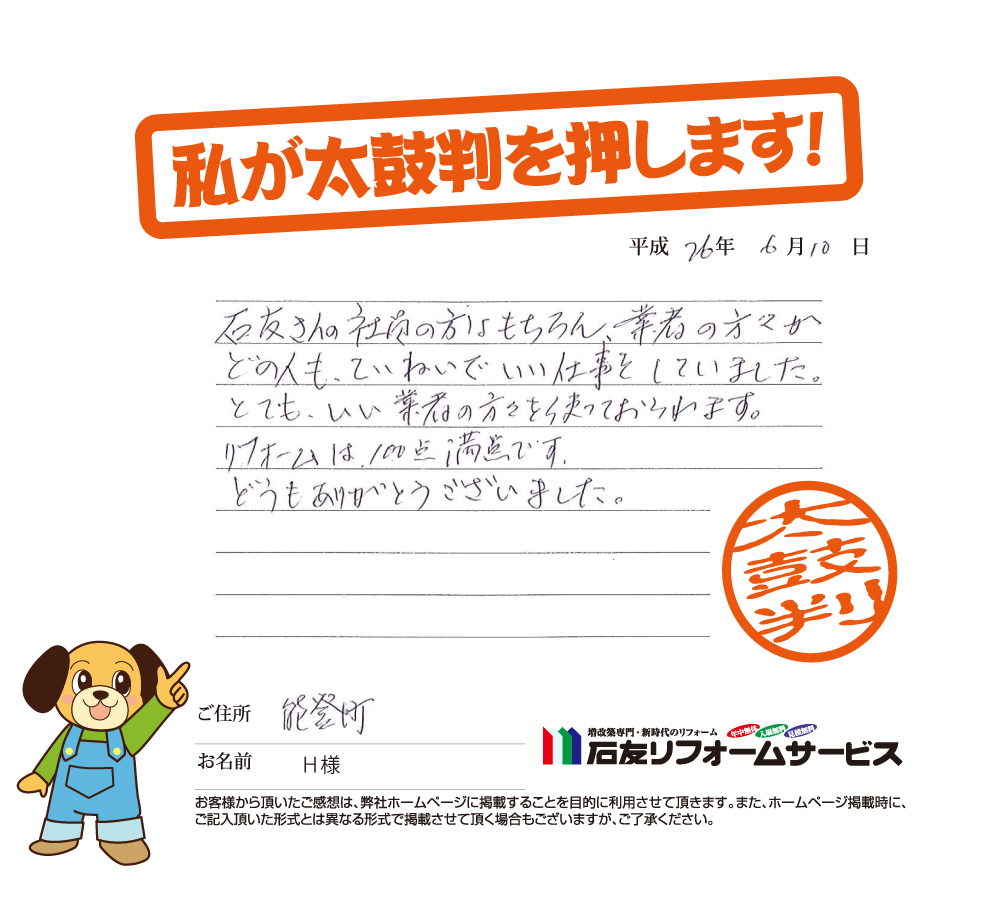 私が太鼓判を押します!
平成 26年 6月10日
石友さんの社員の方はもちろん、業者の方々が
どの人も、ていねいでいい仕事をしていました。
とても、いい業者の方々を使っておられます。
リフォームは、100点満点です。
どうもありがとうございました。
太鼓判
ご住所 能登町
お名前 H様
増改築専門・新時代のリフォーム 年中無休 入場無料 見積無料
石友リフォームサービス
お客様から頂いたご感想は、弊社ホームページに掲載することを目的に利用させて頂きます。また、ホームページ掲載時に、
ご記入頂いた形式とは異なる形式で掲載させて頂く場合もございますが、ご了承ください。